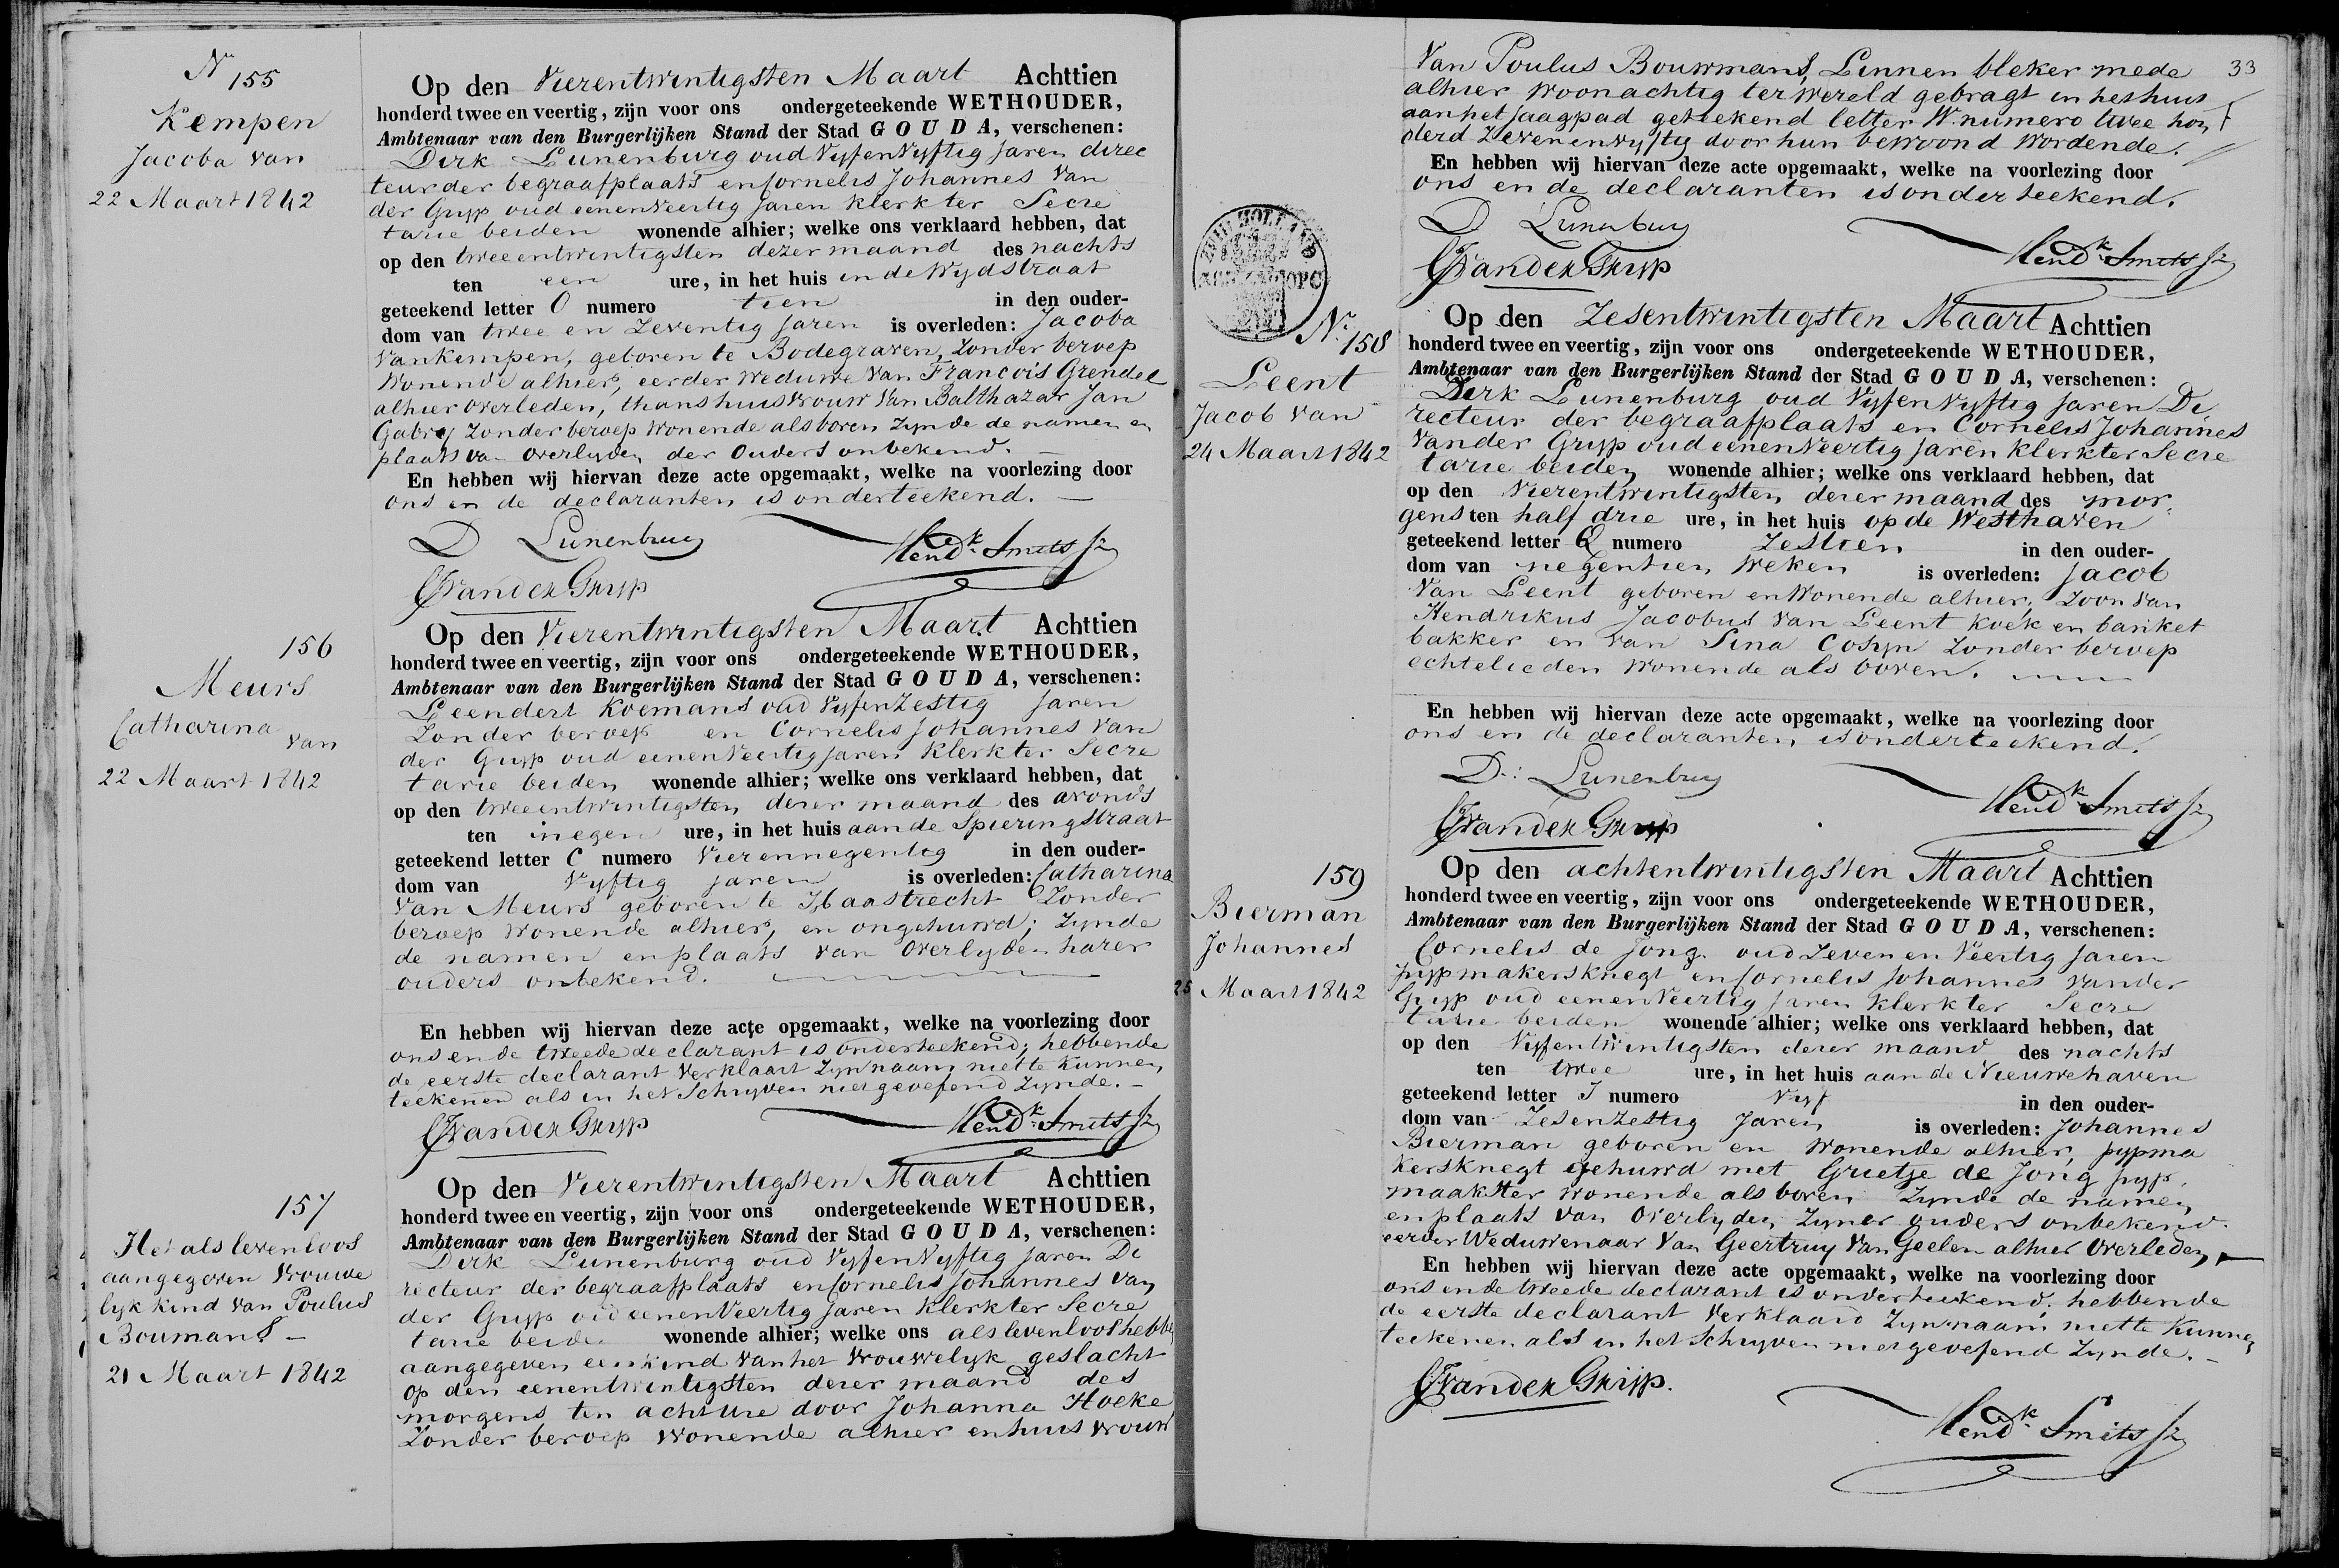 Nr 155
Kempen
Jacoba van
22 Maart 1842
Op den Vierentwintigsten Maart Achttien
honderd twee en veertig, zijn voor ons ondergeteekende WETHOUDER,
Ambtenaar van den Burgerlijken Stand der Stad GOUDA, verschenen:
Dirk Lunenburg oud Vyfenvyftig jaren direc
teur der begraafplaats en Cornelis Johannes van
der Gryp oud eenenveertig jaren klerk ter Secre
tarie beiden wonende alhier; welke ons verklaard hebben, dat
op den tweeentwintigsten dezer maand des nachts
ten een ure, in het huis in de Wydstraat
geteekend letter O numero tien in den ouder-
dom van twee en Zeventig jaren is overleden: Jacoba
van Kempen, geboren te Bodegraven, Zonder beroep
Wonende alhier, eerder Weduwe van Francois Grendel
alhier overleden, thans huisvrouw van Balthazar Jan
Gabry Zonder beroep Wonende als boren Zynde de namen en
plaats van overlyden der Ouders onbekend.
En hebben wij hiervan deze acte opgemaakt, welke na voorlezing door
ons en de declaranten is onderteekend.
D Lunenburg
Hendk. Smits Jz
CJ van der Gryp
156
Meurs
Catharina
van
22 Maart 1842
Op den Vierentwintigsten Maart Achttien
honderd twee en veertig, zijn voor ons ondergeteekende WETHOUDER,
Ambtenaar van den Burgerlijken Stand der Stad GOUDA, verschenen:
Leendert Koemans oud Vyfenzestig jaren
Zonder beroep en Cornelis Johannes van
der Gryp oud eenenveertig jaren klerk ter Secre
tarie beiden wonende alhier; welke ons verklaard hebben, dat
op den tweeentwintigsten dezer maand des avonds
ten negen ure, in het huis aan de Spieringstraat
geteekend letter C numero Vierennegentig in den ouder-
dom van Vyftig jaren is overleden: Catharina
van Meurs geboren te Haastrecht Zonder
beroep wonende alhier, en ongehuwd; Zynde
de namen en plaats van overlyden harer
ouders onbekend.
En hebben wij hiervan deze acte opgemaakt, welke na voorlezing door
ons en de tweede declarant is onderteekend; hebbende
de eerste declarant verklaart Zyn naam niet te kunnen
teekenen als in het Schryven niet geoefend Zynde.
CJ van der Gryp
Hendk. Smits Jz
157
Het als levenloos
aangegeven vrouwe
lyk kind van Poulus
Boumans
21 Maart 1842
Op den Vierentwintigsten Maart Achttien
honderd twee en veertig, zijn voor ons ondergeteekende WETHOUDER,
Ambtenaar van den Burgerlijken Stand der Stad GOUDA, verschenen:
Dirk Lunenburg oud Vyfenvyftig jaren Di
recteur der begraafplaats en Cornelis Johannes van
der Gryp oud eenenveertig jaren klerk ter Secre
tarie beiden wonende alhier; welke ons als levenloos hebben
aangegeven een kind van het vrouwelyk geslacht
op den eenentwintigsten dezer maand des
morgens ten acht ure door Johanna Hoeke
Zonder beroep wonende alhier en huisvrouw
33
Van Poulus Bouwmans, Linnen bleker mede
alhier woonachtig ter wereld gebragt in het huis
aan het Jaagpad geteekend letter W. numero twee hon
derd Zevenenvyftig door hun bewoond wordende.
En hebben wij hiervan deze acte opgemaakt, welke na voorlezing door
ons en de declaranten is onderteekend.
D Lunenburg
Hendk. Smits Jz
CJ van der Gryp
ZUID HOLLAND
Nr. 158
Leent
Jacob van
24 Maart 1842
Op den Zesentwintigsten Maart Achttien
honderd twee en veertig, zijn voor ons ondergeteekende WETHOUDER,
Ambtenaar van den Burgerlijken Stand der Stad GOUDA, verschenen:
Dirk Lunenburg oud Vyfenvyftig jaren Di
recteur der begraafplaats en Cornelis Johannes
van der Gryp oud eenenveertig jaren klerk ter Secre
tarie beiden wonende alhier; welke ons verklaard hebben, dat
op den Vierentwintigsten dezer maand des mor
gens ten half drie ure, in het huis op de Westhaven
geteekend letter Q numero Zestien in den ouder-
dom van negentien Weken is overleden: Jacob
van Leent geboren en Wonende alhier, Zoon van
Hendrikus Jacobus van Leent koek en banket
bakker en van Sina Cosyn Zonder beroep
echtelieden wonende als boven.
En hebben wij hiervan deze acte opgemaakt, welke na voorlezing door
ons en de declaranten is onderteekend.
D: Lunenburg
Hendk. Smits Jz
CJ van der Gryp
159
Bierman
Johannes
25 Maart 1842
Op den achtentwintigsten Maart Achttien
honderd twee en veertig, zijn voor ons ondergeteekende WETHOUDER,
Ambtenaar van den Burgerlijken Stand der Stad GOUDA, verschenen:
Cornelis de Jong oud Zevenen Veertig jaren
pypmakersknegt en Cornelis Johannes van der
Gryp oud eenenveertig jaren klerk ter Secre
tarie beiden wonende alhier; welke ons verklaard hebben, dat
op den Vyfentwintigsten dezer maand des nachts
ten twee ure, in het huis aan de Nieuwehaven
geteekend letter I numero Vyf in den ouder-
dom van Zesenzestig Jaren is overleden: Johannes
Bierman geboren en wonende alhier, pypma
kersknegt gehuwd met Grietje de Jong pyp
maakster wonende als boven Zynde de namen
en plaats van overlyden Zyner ouders onbekend.
eerder Weduwenaar van Geertruy van Geelen alhier overleden,
En hebben wij hiervan deze acte opgemaakt, welke na voorlezing door
ons en de tweede declarant is onderteekend; hebbende
de eerste declarant Verklaard Zyn naam niet te kunnen
teekenen als in het Schryven niet geoefend Zynde.
CJ van der Gryp.
Hendk. Smits Jz